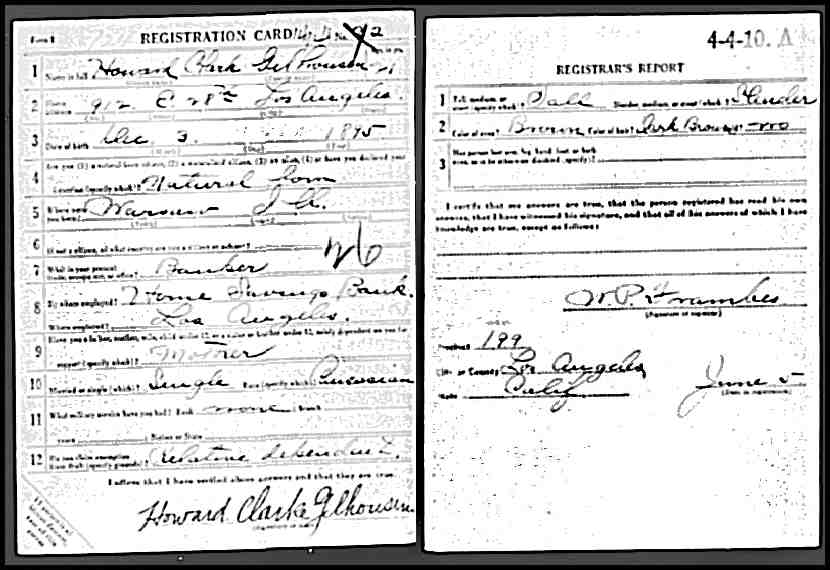 Form 1 REGISTRATION CARD No. 92
1 Name in full Howard Clark Gelhousen 21
2 Home address 912 E 28th Los Angeles.
3 Date of birth Dec. 3. 1895
4 Are you (1) a natural-born citizen, (2) a naturalized citizen, (3) an alien, (4) or have you declared your
intention (specify which)? Natural born
5 Where were you born? Warsaw Ill.
6 If not a citizen, of what country are you a citizen or subject?
7 What is your present trade, occupation, or office? Banker 26
8 By whom employed? Home Savings Bank.
Where employed? Los Angeles.
9 Have you a father, mother, wife, child under 12, or a sister or brother under 12, solely dependent on you for
support (specify which)? Mother
10 Married or single (which)? Single Race (specify which)? Caucasian
11 What military service have you had? Rank none branch
years Nation or State
12 Do you claim exemption from draft (specify grounds)? Relative dependent.
I affirm that I have verified above answers and that they are true.
Howard Clarke Gelhousen
4-4-10. A
REGISTRAR'S REPORT
1 Tall, medium, or short (specify which)? Tall Slender, medium, or stout (which)? Slender
2 Color of eyes? Brown Color of hair? Dark Brown Bald? no
3 Has person lost arm, leg, hand, foot, or both
eyes, or is he otherwise disabled (specify)?
I certify that my answers are true, that the person registered has read his own
answers, that I have witnessed his signature, and that all of his answers of which I have
knowledge are true, except as follows:
W. P. Frambes
(Signature of registrar)
Precinct 199
City or County Los Angeles
State Calif June 5
(Date of registration)